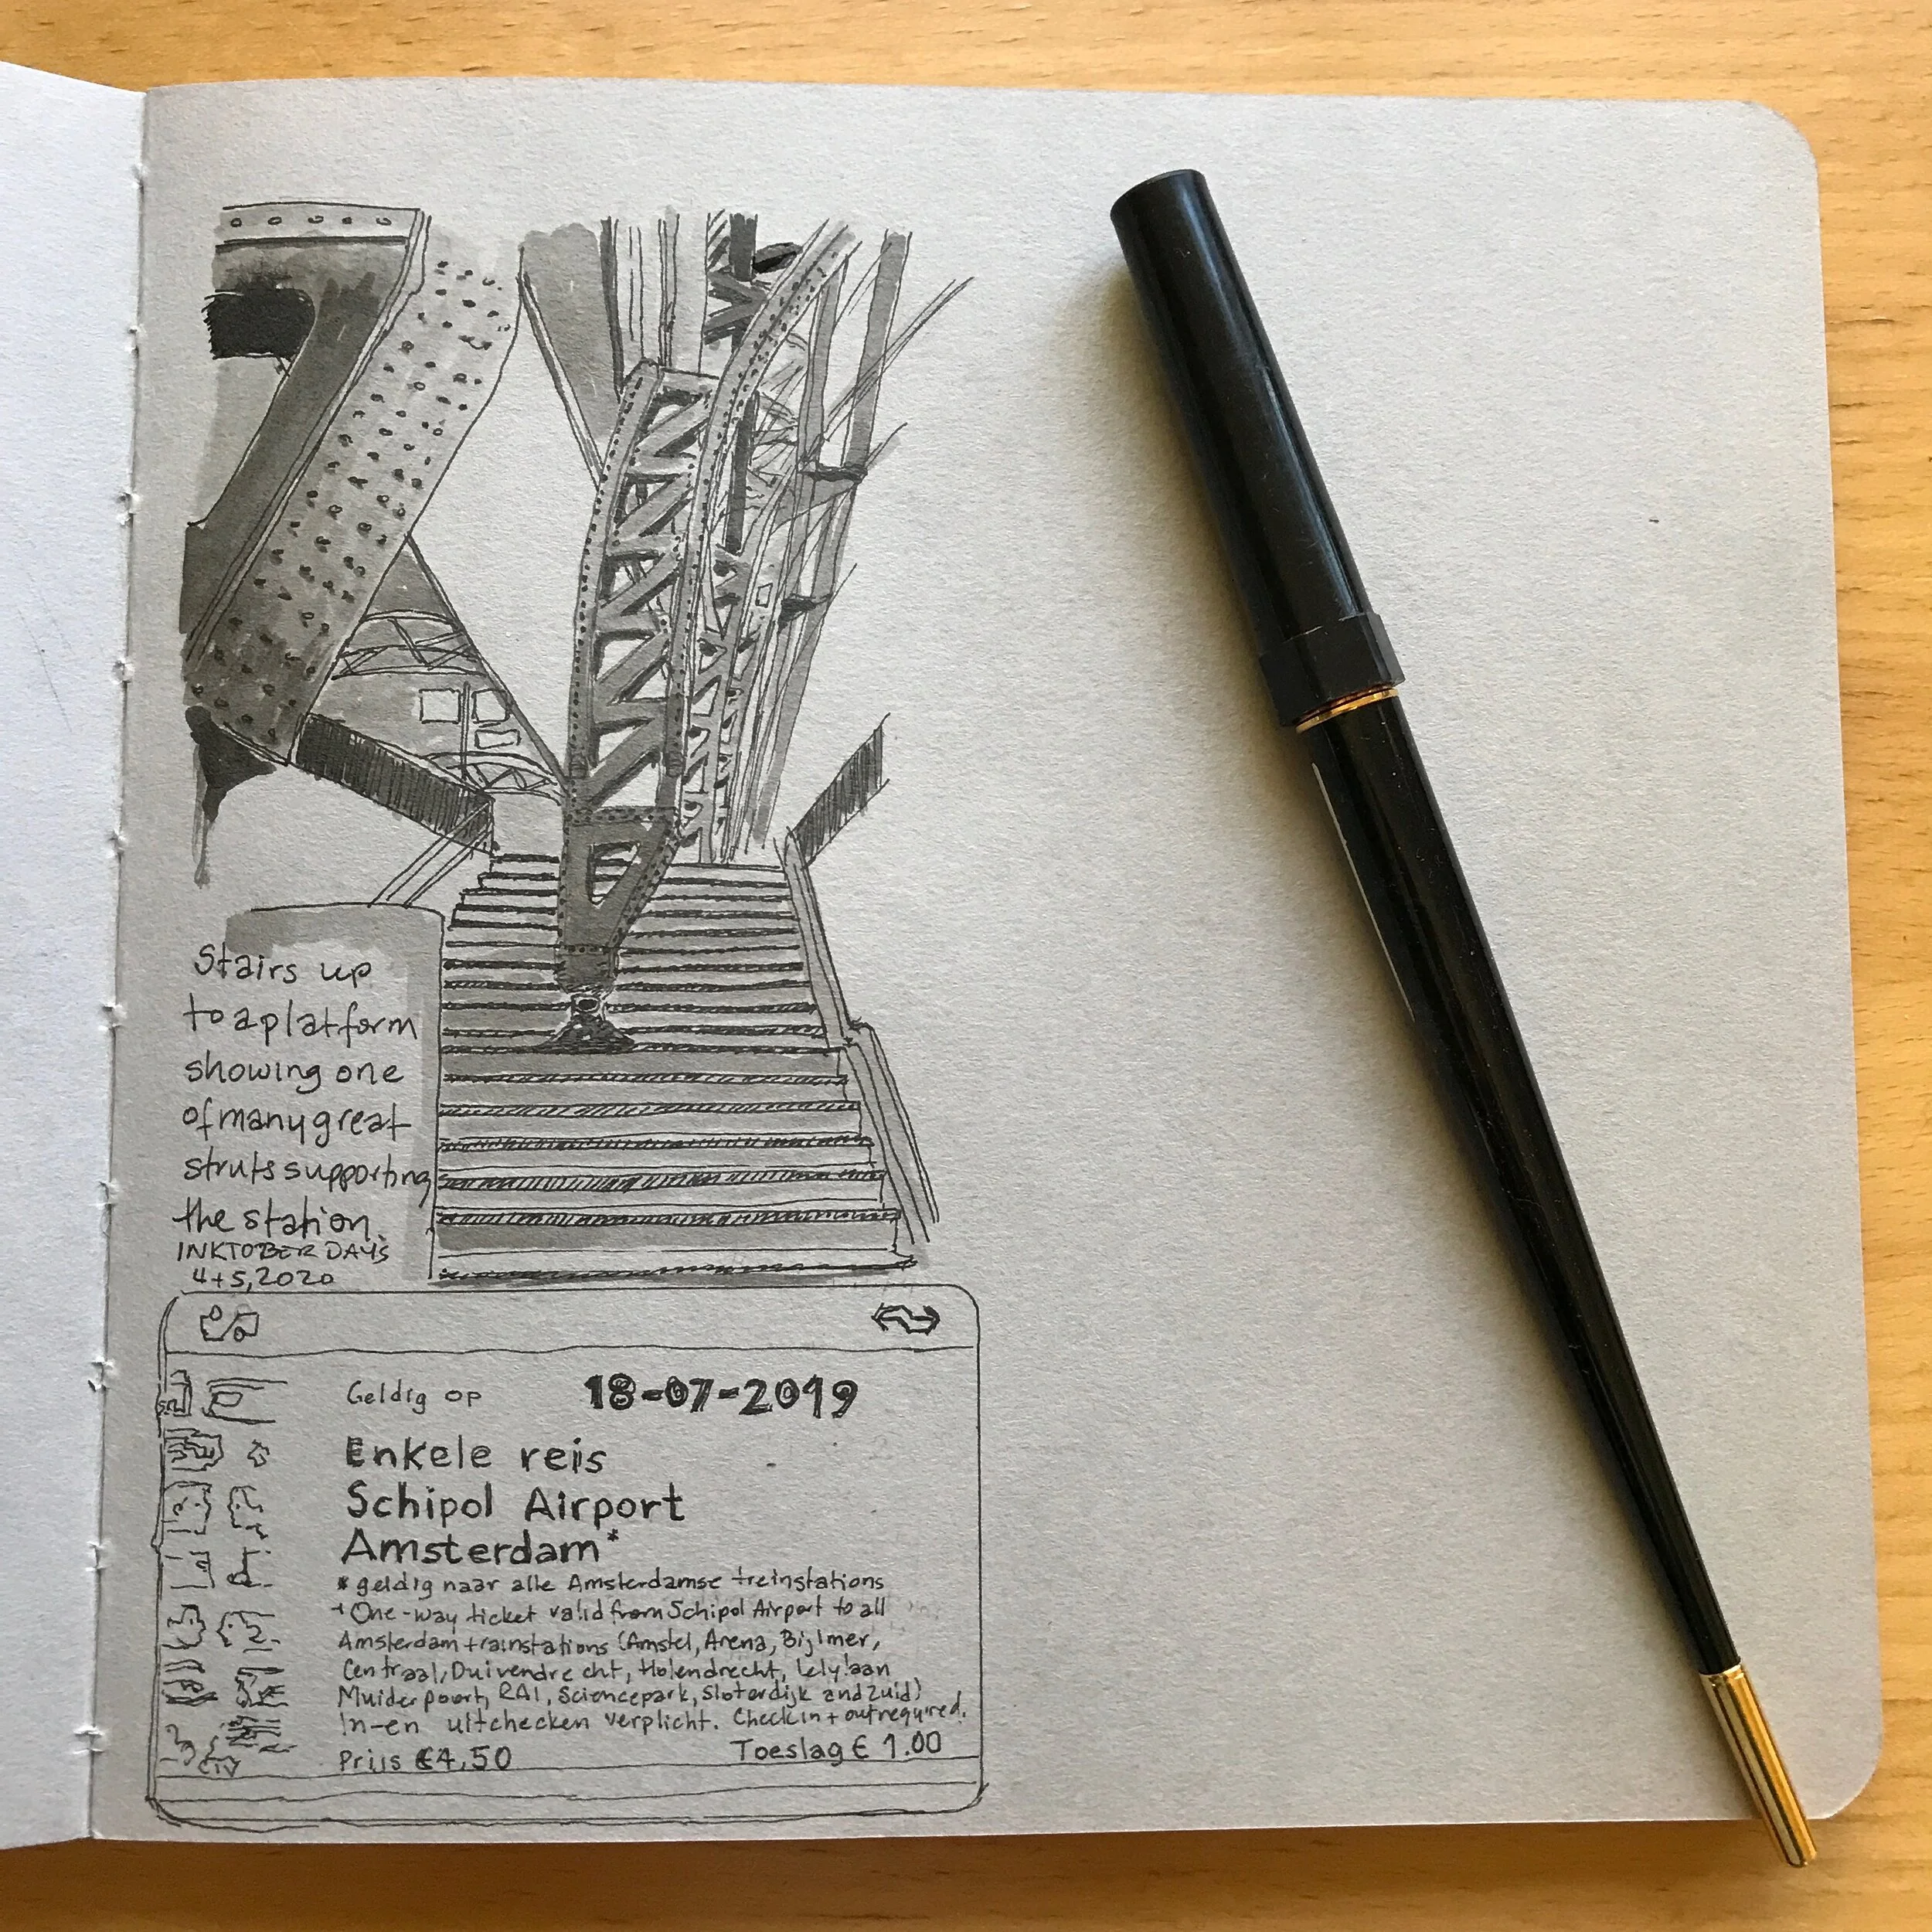 Stairs up
to a platform
showing one
of many great
struts supporting
the station.
INKTOBER DAYS
4+5, 2020
Geldig op 18-07-2019
Enkele reis
Schipol Airport
Amsterdam*
* geldig naar alle Amsterdamse treinstations
+ One-way ticket valid from Schipol Airport to all
Amsterdam trainstations (Amstel, Arena, Bijlmer,
Centraal, Duivendrecht, Holendrecht, Lelylaan
Muiderpoort, RAI, Sciencepark, Sloterdijk and Zuid)
In-en uitchecken verplicht. Check in + out required.
Prijs €4,50 Toeslag € 1.00